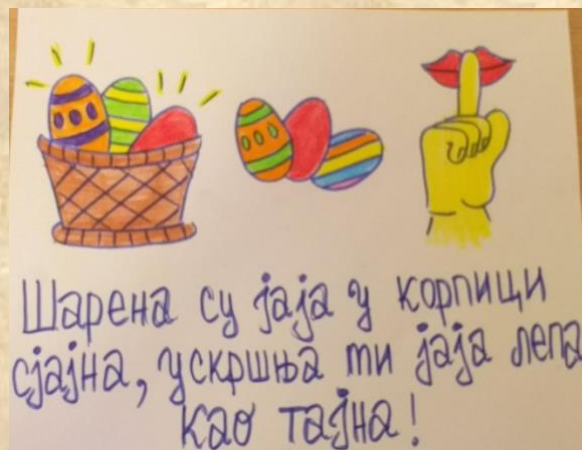 Шарена су јаја у корпици
сјајна, ускршња ти јаја лепа
као тајна!